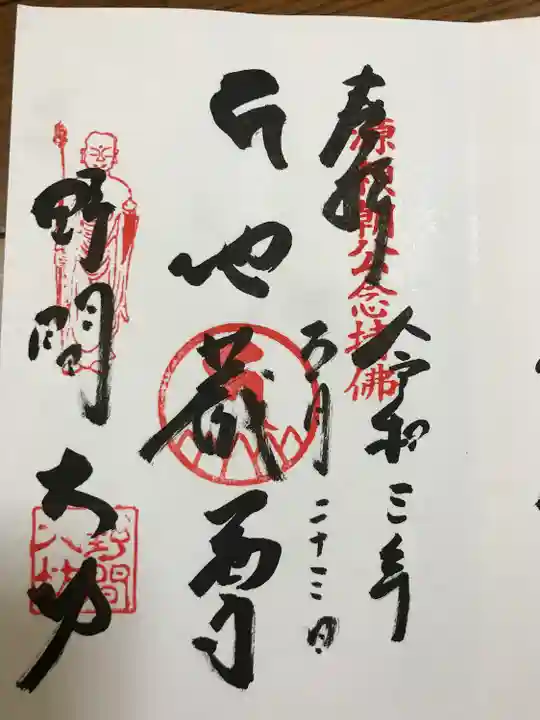 奉拝
源頼朝公念持佛
令和三年
五月二十三日
地蔵尊
野間大坊
野間大坊